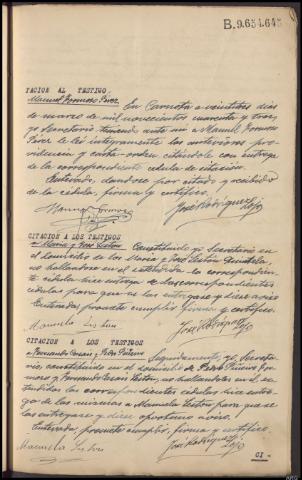 B.9.654.645
TACION AL TESTIGO
Manuel Formoso Perez. En Carnota a veintitres dias
de marzo de mil novecientos cuarenta y tres,
yo Secretario teniendo ante mi a Manuel Formoso
Perez le leí integramente las anteriores pro-
videncia y carta-orden citandole con entrega
de la correspondiente cedula de citacion.
Enterado, dandose por citado y recibido
de la cédula, firma y certifico.
Manuel Formoso
José Rodríguez
CITACION A LOS TESTIGOS
a Maria y Jose Lestón Constituido yo Secretario en
el domicilio de los Maria y Jose Lestón Quintela,
no hallandoles en el
te cedula hice entrega de las correspondientes
cedulas para que se las entregase y diese aviso
Enterada, promete cumplir, firma y certifico.
Manuela Lestón
José Rodríguez
CITACION A LOS TESTIGOS
a Fernando y Pedro Seguidamente, yo, Secreta-
rio, constituido en el domicilio de Pedro
y Fernando Lestón, no hallandoles en el
cédulas hice entre-
ga de las mismas a Manuela Lestón para que se
las entregase y diese oportuno aviso.
Enterada, promete cumplir, firma y certifico.
Manuela Lestón
José Rodríguez
CI-